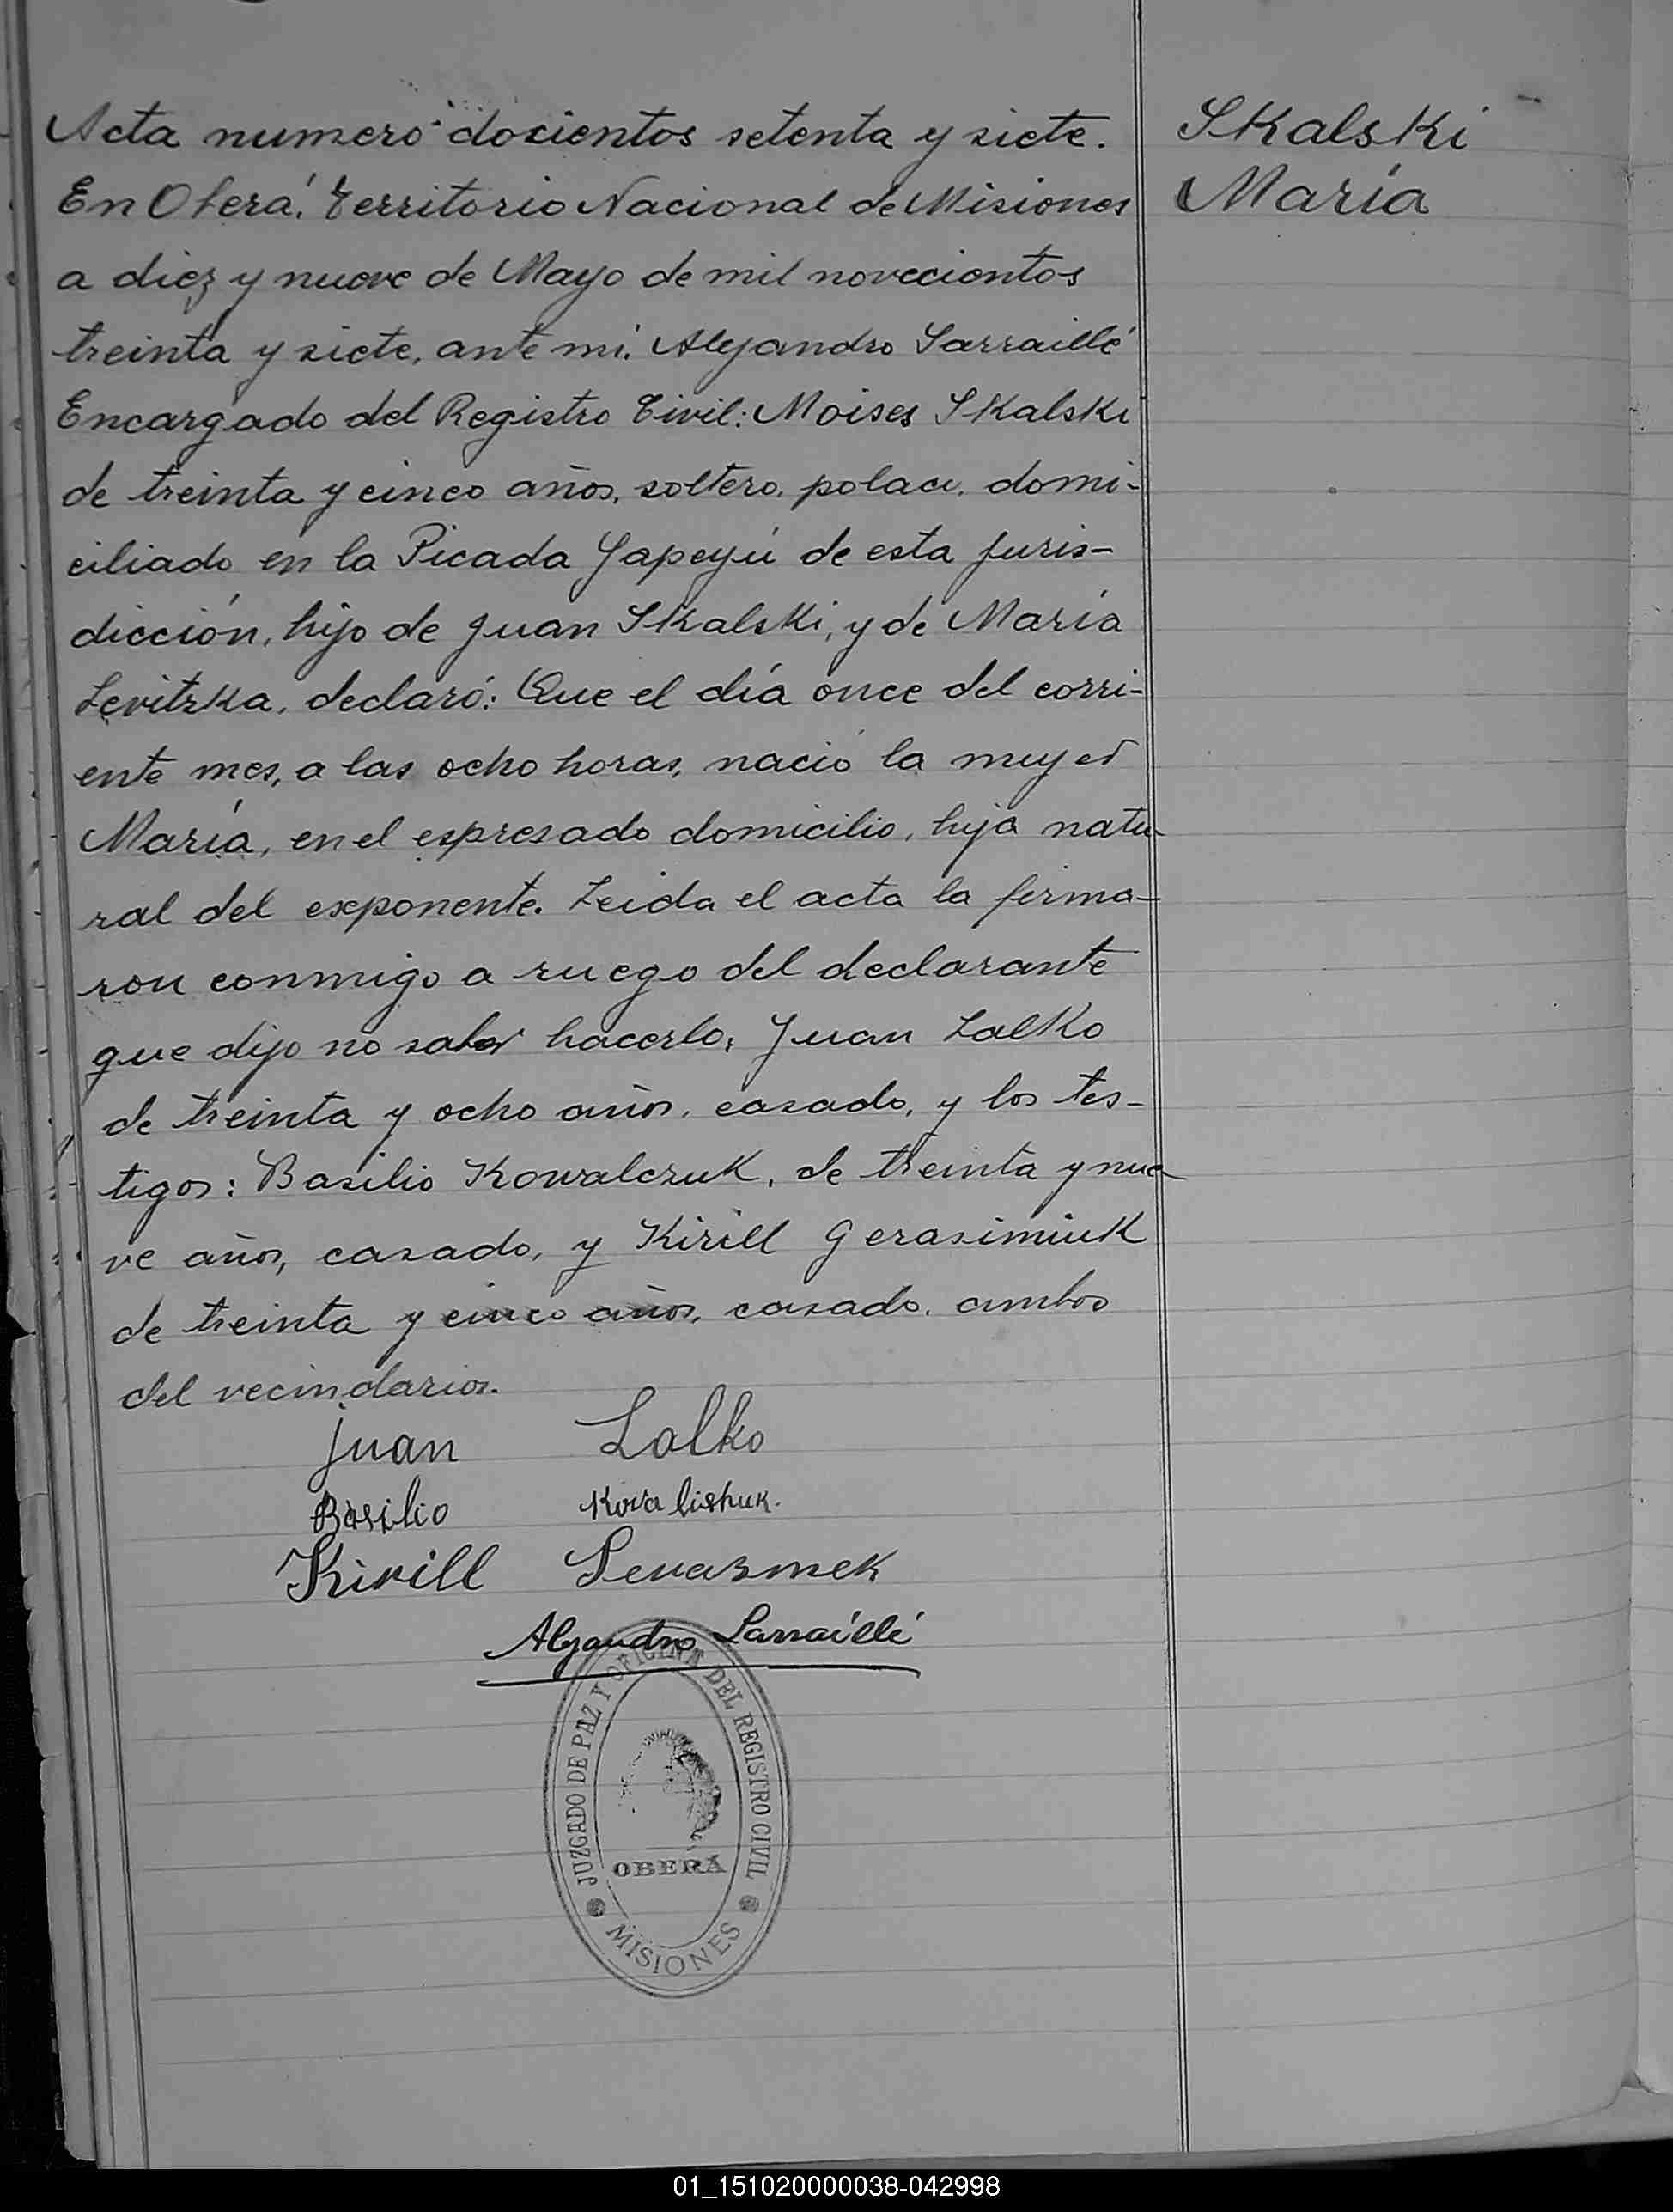 Skalski
María
Acta numero docientos setenta y siete.
En Oberá. Territorio Nacional de Misiones
a diez y nueve de Mayo de mil novecientos
treinta y siete, ante mi. Alejandro Sarraillé
Encargado del Registro Civil: Moises Skalski
de treinta y cinco años, soltero, polaco, domi-
ciliado en la Picada Yapeyú de esta juris-
dicción, hijo de Juan Skalski, y de María
Levitzka, declaró: Que el día once del corri-
ente mes, a las ocho horas, nació la mujer
María, en el espresado domicilio, hija natu-
ral del exponente. Leida el acta la firma-
ron conmigo a ruego del declarante
que dijo no saber hacerlo, Juan Lalko
de treinta y ocho años, casado, y los tes-
tigos: Basilio Kowalczuk, de treinta y nue
ve años, casado, y Kirill Gerasimiuk
de treinta y cinco años, casado, ambos
del vecindario.
Juan Lalko
Basilio Kovalishuk.
Kirill
Alejandro Sarraillé
JUZGADO DE PAZ Y OFICINA DEL REGISTRO CIVIL
OBERÁ
MISIONES
01_151020000038-042998